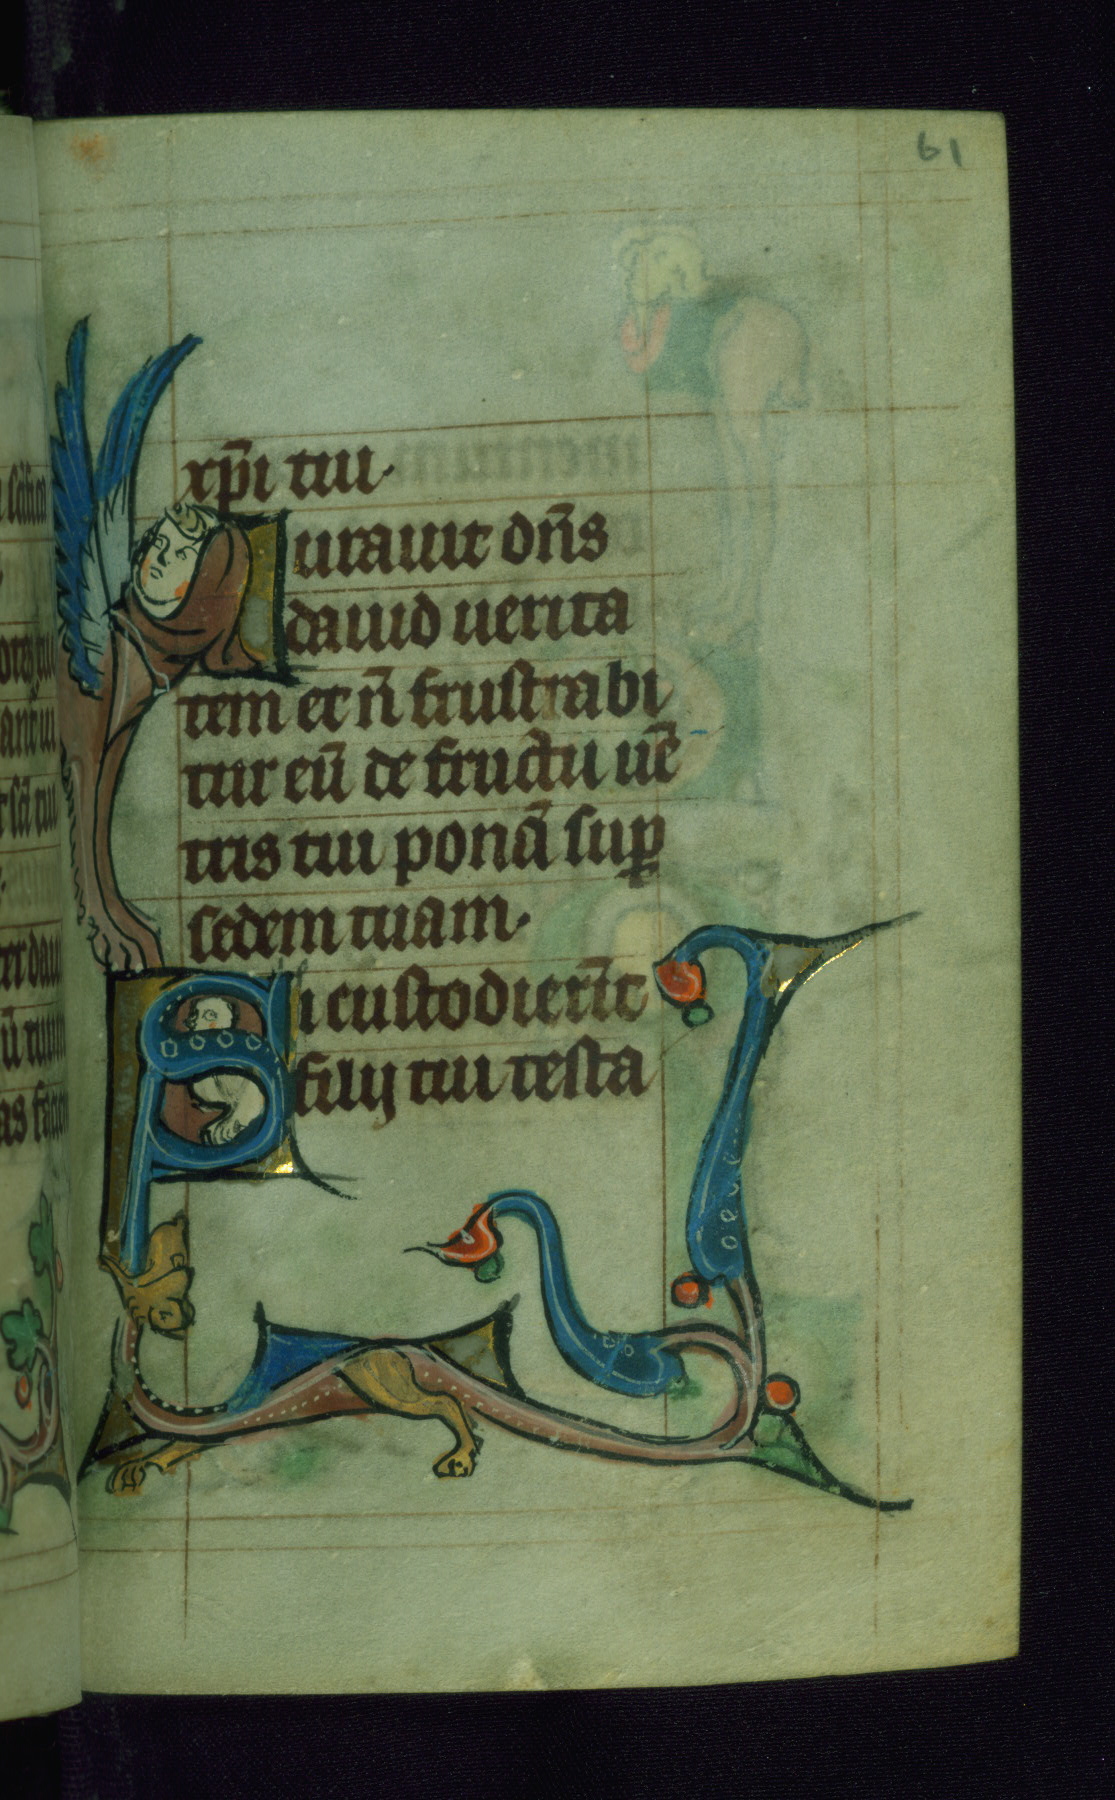 61
xp̄i tui·
Iurauit dn̄s
dauid uerita
tem et n̄ frustrabi
tur eū de fructu uē
tris tui ponā sup̱
sedem tuam·
Si custodierīt
filij tui testa